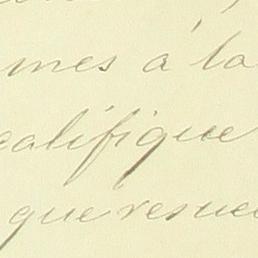 mes á la
califique
que resue